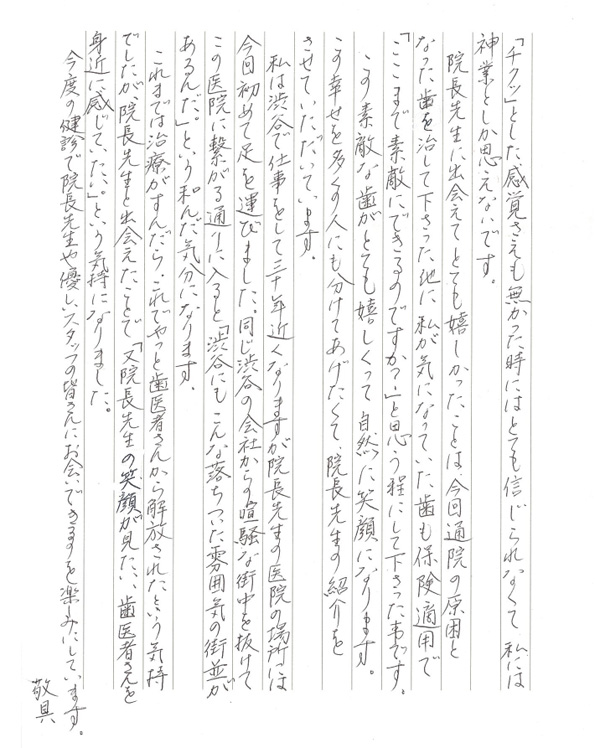 「チクッ」とした、感覚さえも無かった時にはとても信じられなくて 私には
神業としか思えないです。
院長先生に出会えてとても嬉しかったことは、今回通院の原因と
なった歯を治して下さった他に 私が気になっていた歯も保険適用で
「ここまで素敵にできるのですか？」と思う程にして下さった事です。
この素敵な歯がとても嬉しくって 自然に笑顔になります。
この幸せを多くの人にも分けてあげたくて、院長先生の紹介を
させていただいています。
私は渋谷で仕事をして三十年近くなりますが院長先生の医院の場所は
今回初めて足を運びました。同じ渋谷の会社からの喧騒な街中を抜けて
この医院に繋がる通りに入ると「渋谷にも こんな落ちついた雰囲気の街並が
あるんだ。」という和んだ気分になります。
これまでは治療がすんだら、これでやっと歯医者さんから解放されたという気持
でしたが院長先生と出会えたことで「又院長先生の笑顔が見たい、歯医者さんを
身近に感じていたい。」という気持になりました。
今度の健診で院長先生や優しいスタッフの皆さんにお会いできるのを楽みにしています。
敬具